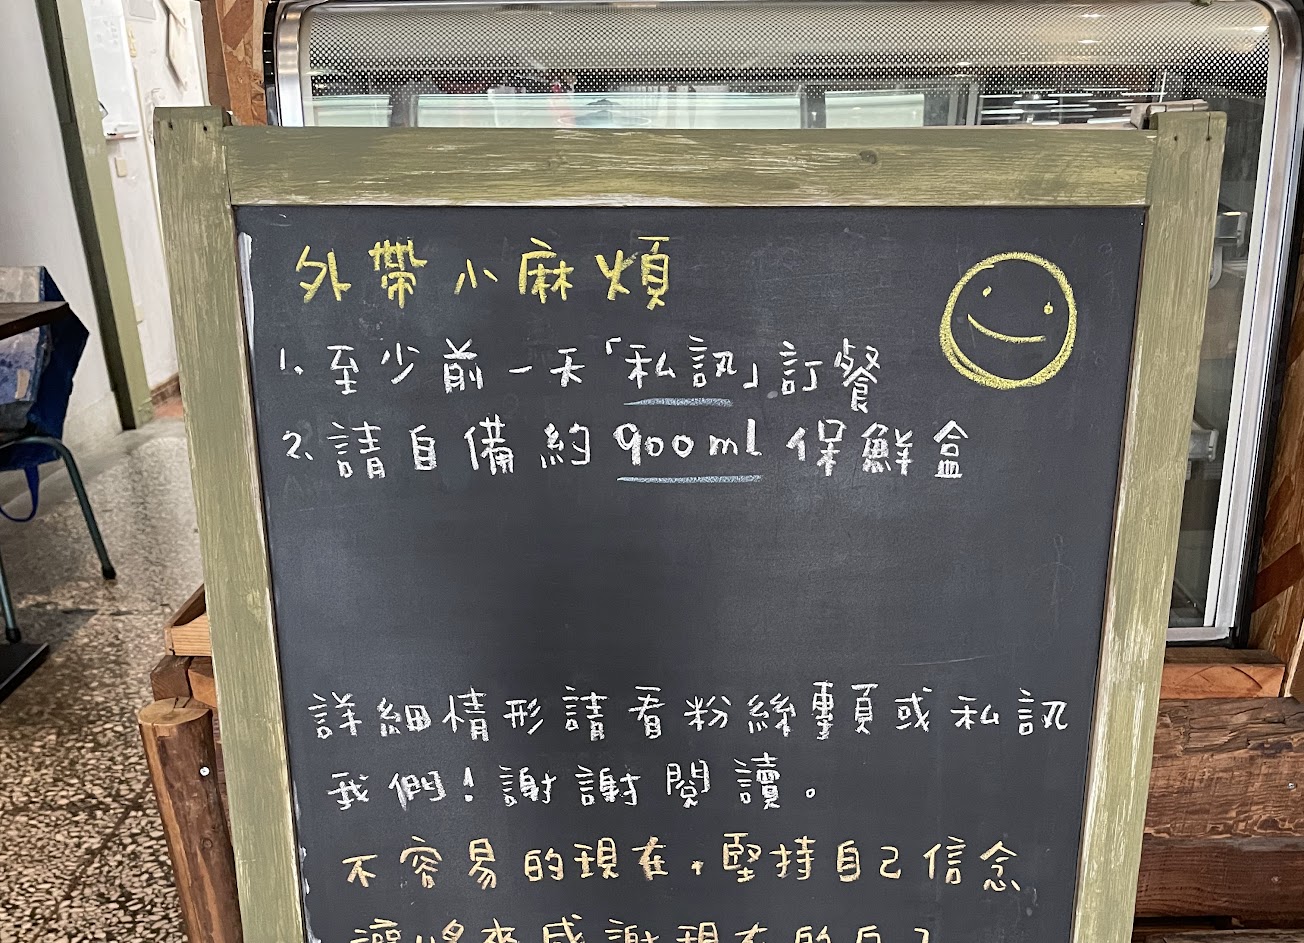 外帶小麻煩
1. 至少前一天「私訊」訂餐
2. 請自備約900ml保鮮盒
詳細情形請看粉絲專頁或私訊
我們!謝謝閱讀。
不容易的現在,堅持自己信念
讓將來感謝現在的自己